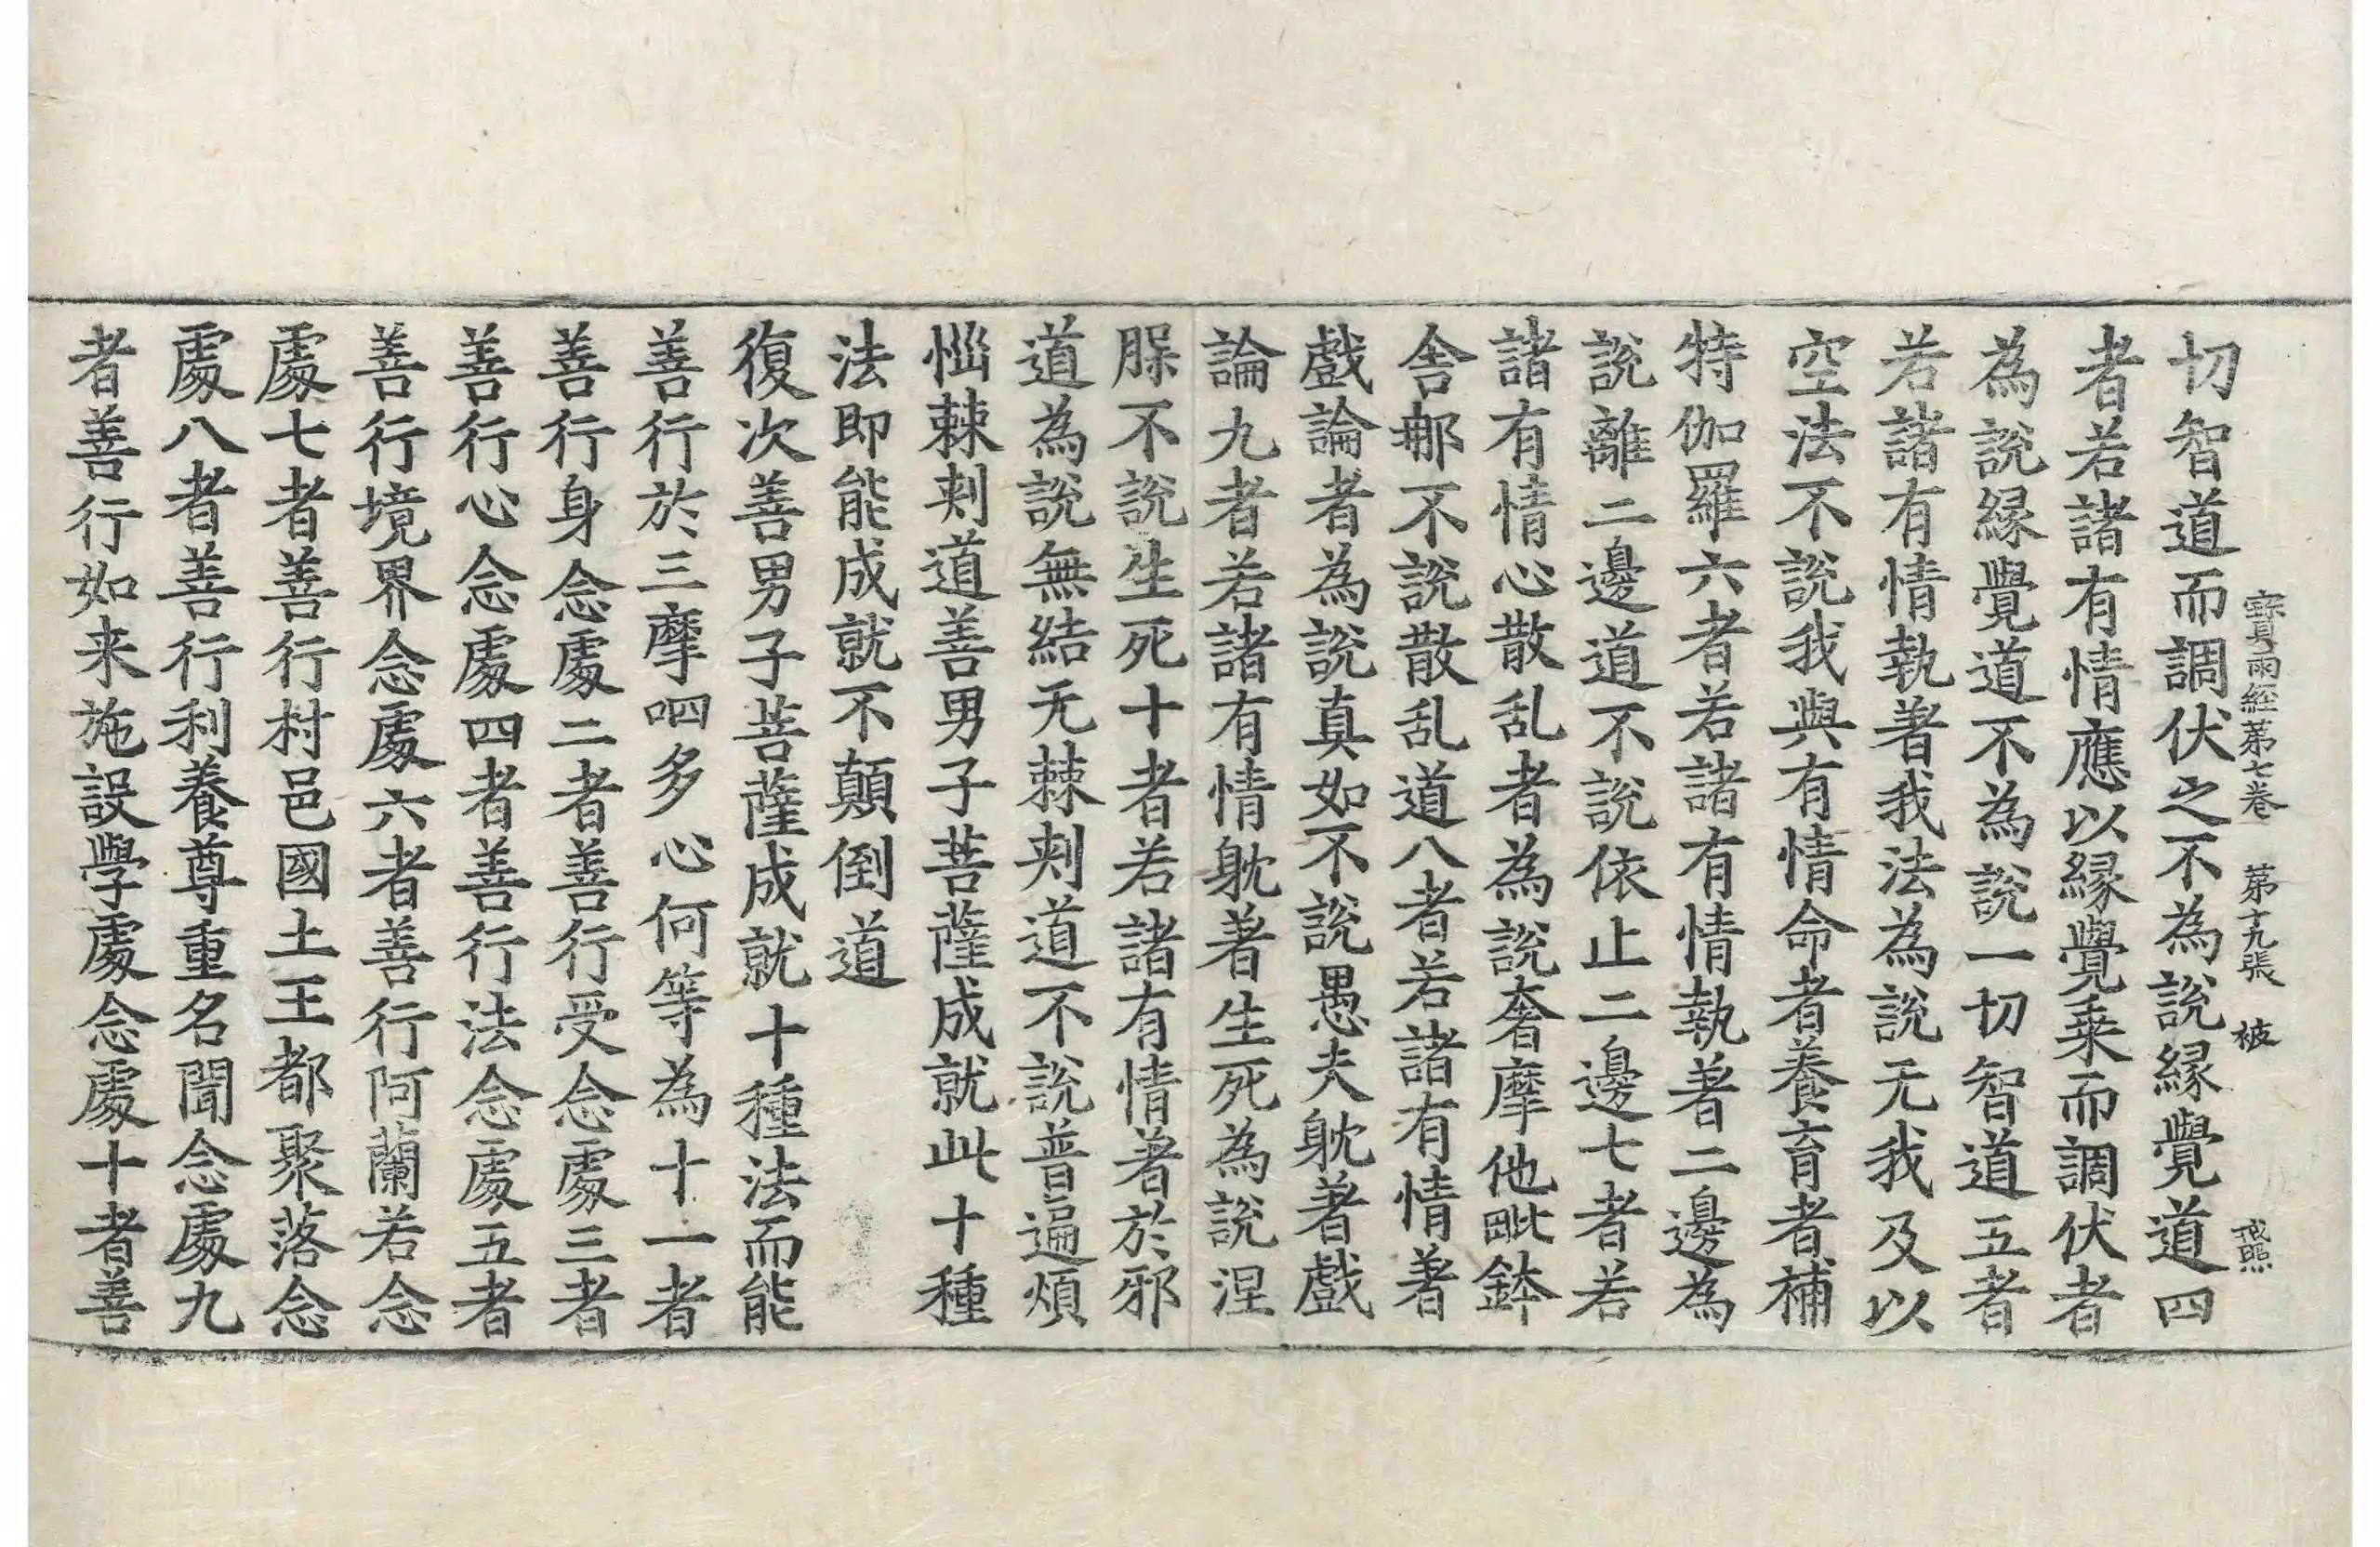 寳雨經第七卷 第十九張 被 戒照
切智道而調伏之不為說縁覺道四
者若諸有情應以縁覺乗而調伏者
為說縁覺道不為說一切智道五者
若諸有情執著我法為說无我及以
空法不說我與有情命者養育者補
特伽羅六者若諸有情執著二邊為
說離二邊道不說依止二邊七者若
諸有情心散乱者為說奢摩他毗鉢
舍那不說散乱道八者若諸有情著
戲論者為說真如不說愚夫躭著戲
論九者若諸有情躭著生死為說涅
脲不說生死十者若諸有情著於邪
道為說無結无棘刺道不說普遍煩
惱棘刺道善男子菩薩成就此十種
法即能成就不顛倒道
復次善男子菩薩成就十種法而能
善行於三摩呬多心何等為十一者
善行身念處二者善行受念處三者
善行心念處四者善行法念處五者
善行境界念處六者善行阿蘭若念
處七者善行村邑國土王都聚落念
處八者善行利養尊重名聞念處九
者善行如来施設學處念處十者善